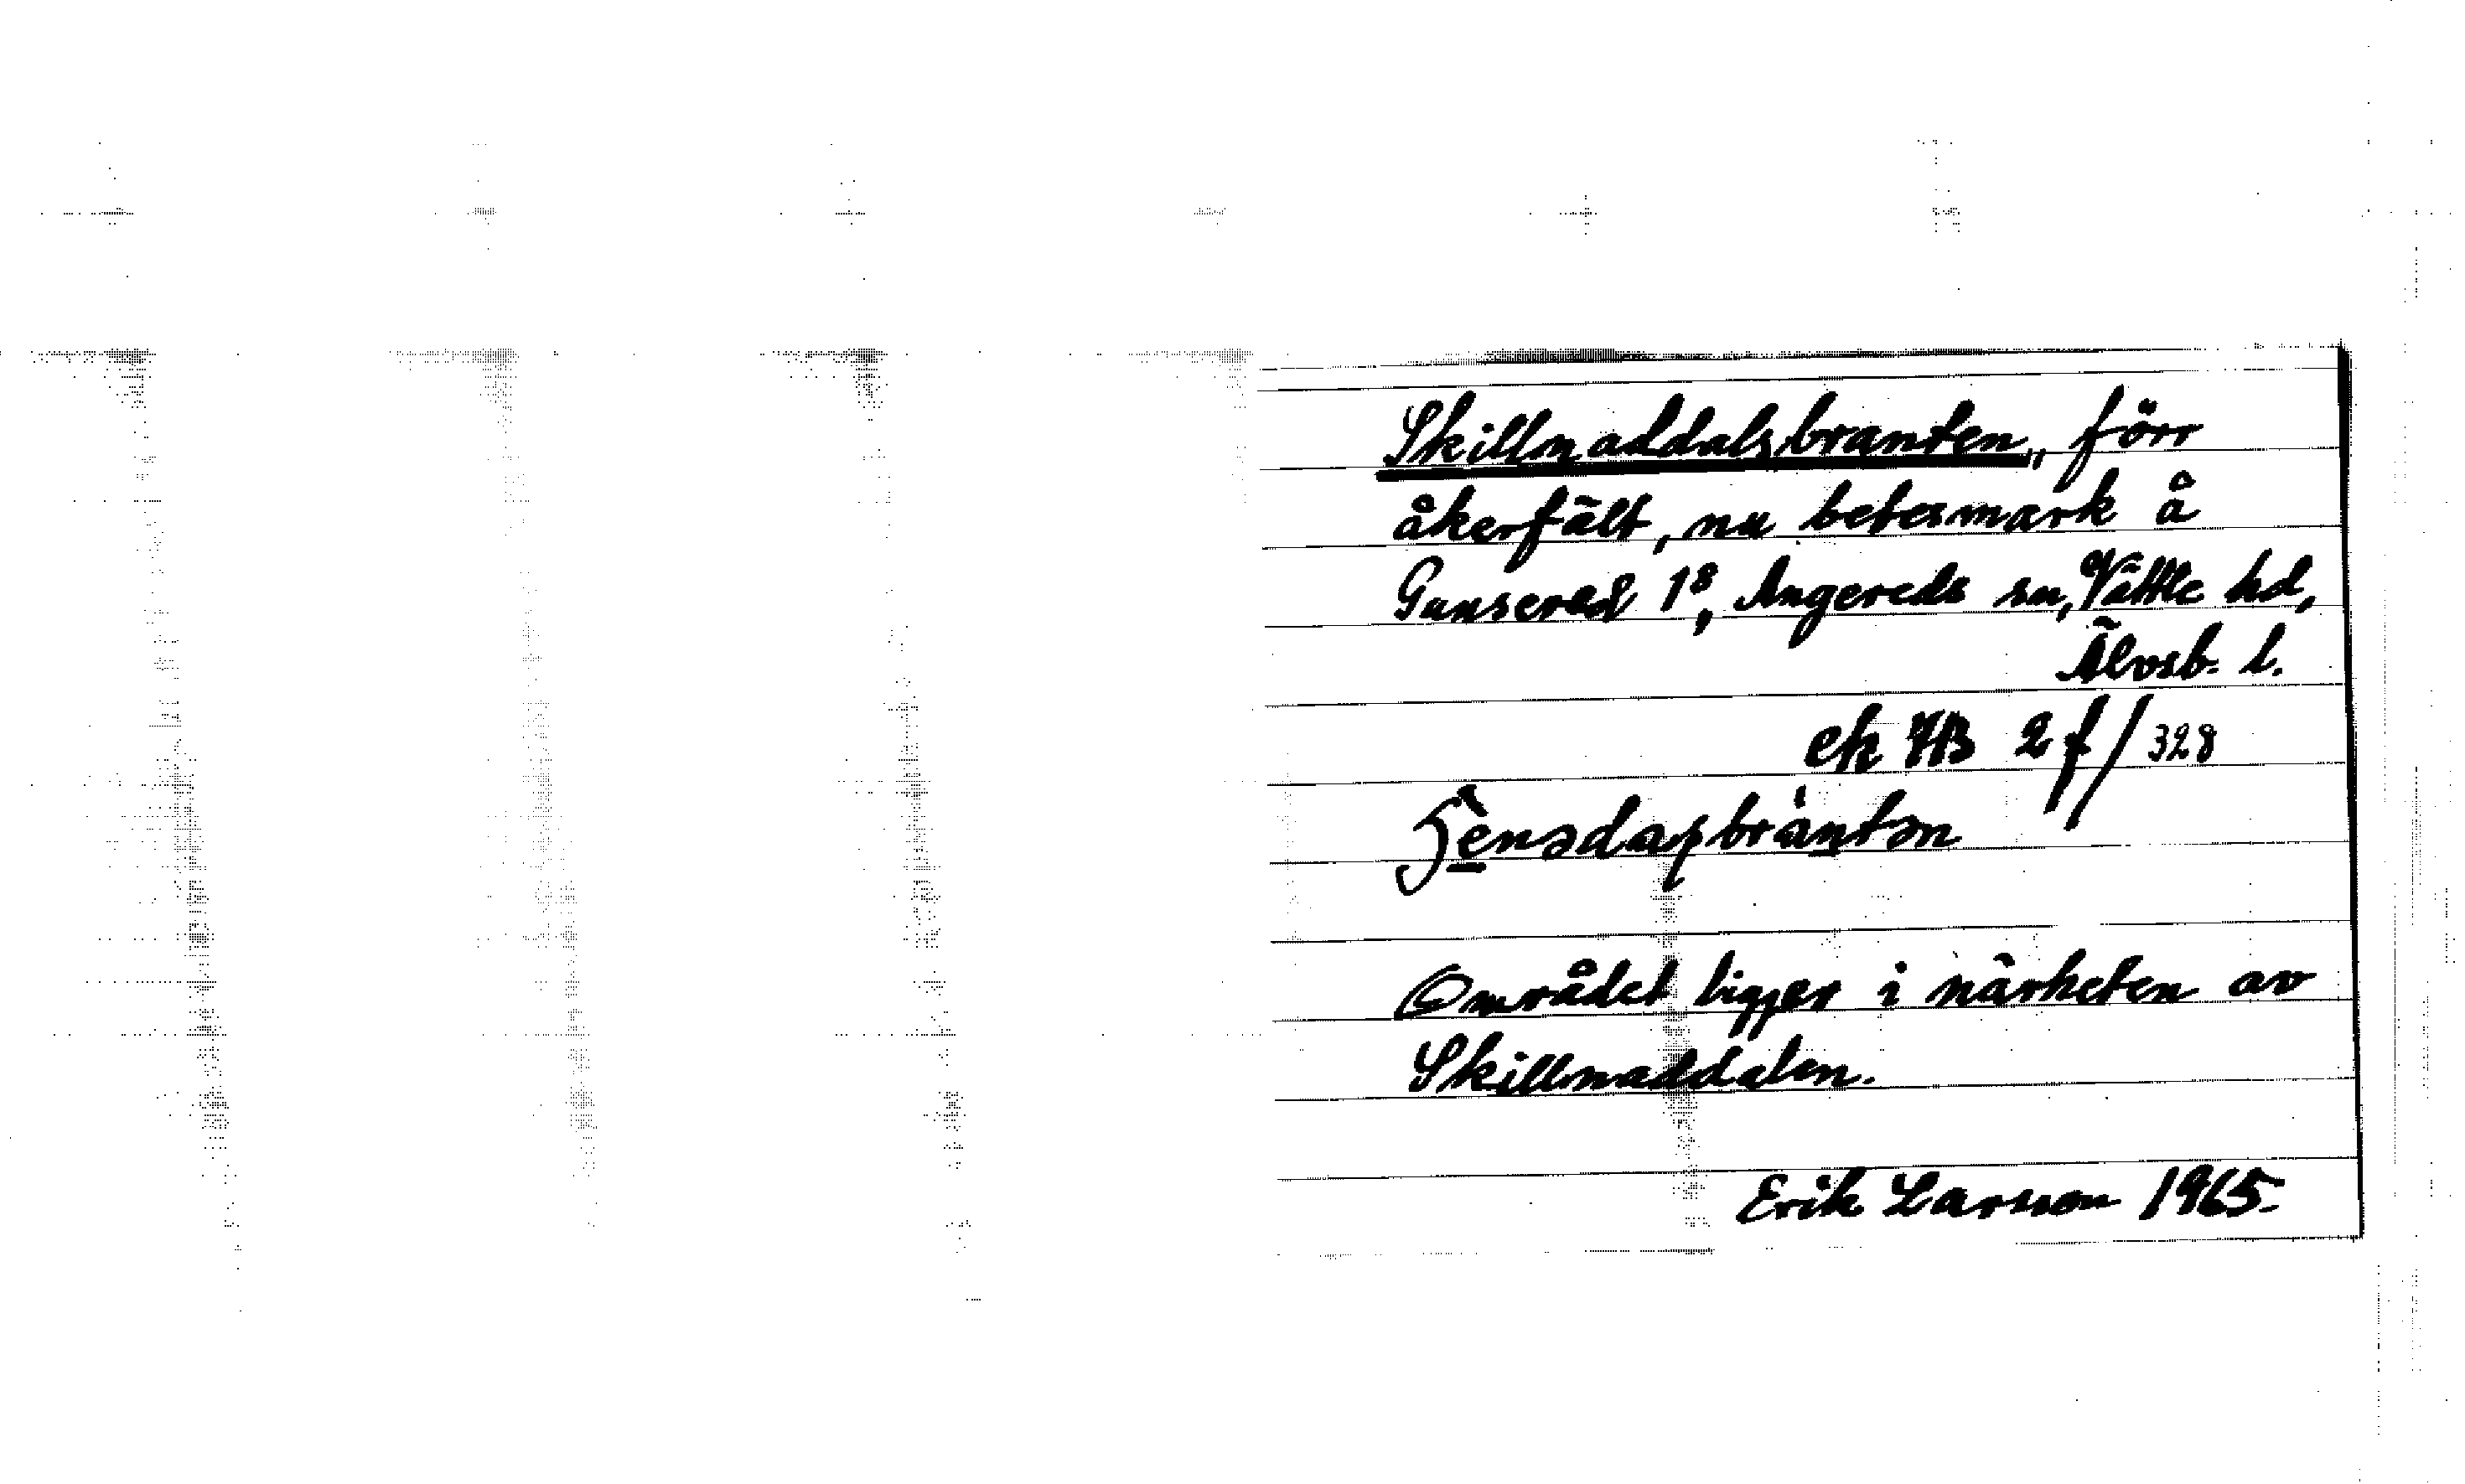 Skillmaddalsbranten, förr
åkerfält, nu betesmark å
Gunsered 1⁸, Angereds sn, Vättle hd,
Älvsb. l.
ek HB 2 f/328
Området ligger i närheten av
Skillmaddalen.
Erik Larsson 1965.